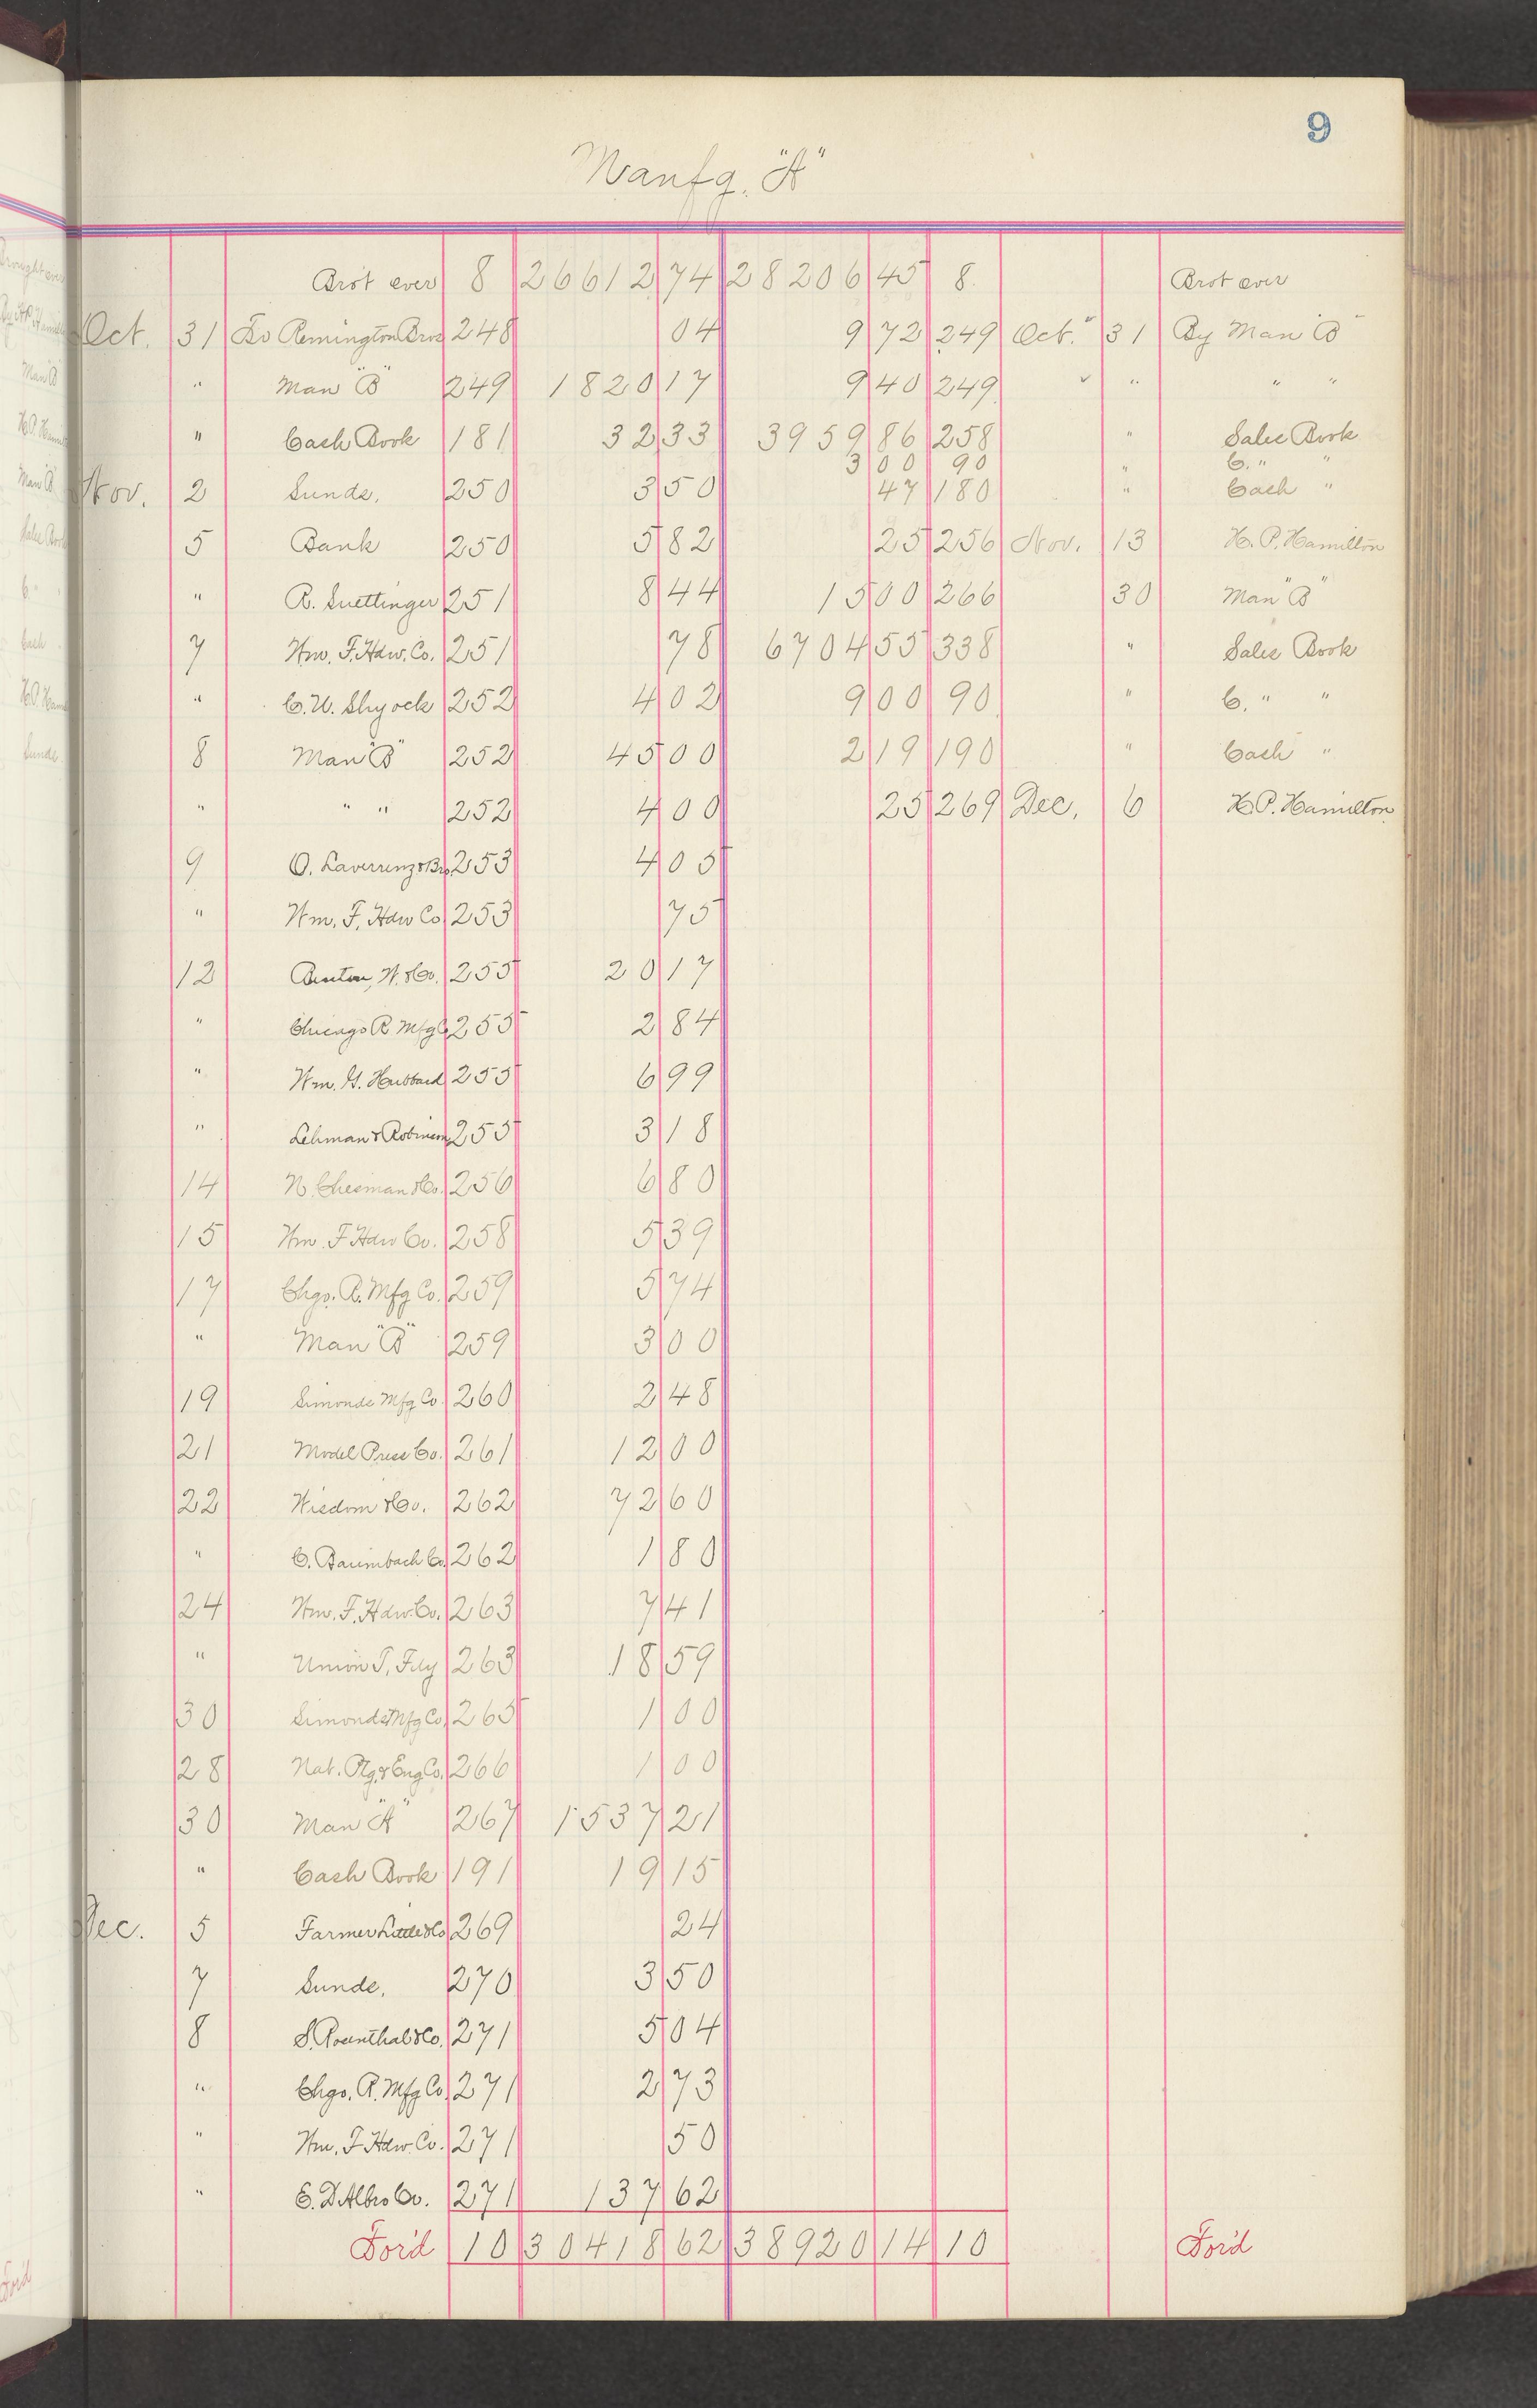 9
Manfg. "A"
Brot over 8 26612 74 28206 45 8 Brot over
Oct. 31 To Remington Bros 248 04 9 72 249 Oct. 31 By Man "B"
" Man "B" 249 1820 17 9 40 249 " " "
" Cash Book 181 32 33 3959 86 258 " Sales Book
3 00 90 " C. " "
Nov. 2 Sunds. 250 3 50 47 180 " Cash "
5 Bank 250 5 82 25 256 Nov. 13 H. P. Hamilton
" R. Suettinger 251 8 44 15 00 266 30 Man "B"
7 Wm. F. Hdw. Co. 251 78 6704 55 338 " Sales Book
" C. W. Shyock 252 4 02 9 00 90 " C. " "
8 Man "B" 252 45 00 2 19 190 " Cash "
" " " 252 4 00 25 269 Dec. 6 H. P. Hamilton
9 253 4 05
" Wm. F. Hdw Co 253 75
12 W. & Co. 255 20 17
" Chicago R Mfg Co 255 2 84
" Wm. H. Hubbard 255 6 99
" Lehman & Robinson 255 3 18
14 N. Chesman & Co. 256 6 80
15 Wm. F Hdw Co. 258 5 39
17 Chgo. R. Mfg Co. 259 5 74
" Man "B" 259 3 00
19 Simonds Mfg Co 260 2 48
21 Model Press Co. 261 12 00
22 Wisdom & Co. 262 72 60
" C. Baumbach Co 262 1 80
24 Wm. F. Hdw. Co. 263 7 41
" Union S. Fdy 263 18 59
30 Simonds Mfg Co 265 1 00
28 Nat. Ptg. & Eng Co. 266 1 00
30 Man "A" 267 1537 21
" Cash Book 191 19 15
Dec. 5 Farmer & Co 269 24
7 Sunds. 270 3 50
8 S. Rosenthal & Co. 271 5 04
" Chgo. R. Mfg Co 271 2 73
" Wm. F Hdw. Co. 271 50
" E. D Albro Co. 271 137 62
For'd 10 30418 62 38920 14 10 For'd